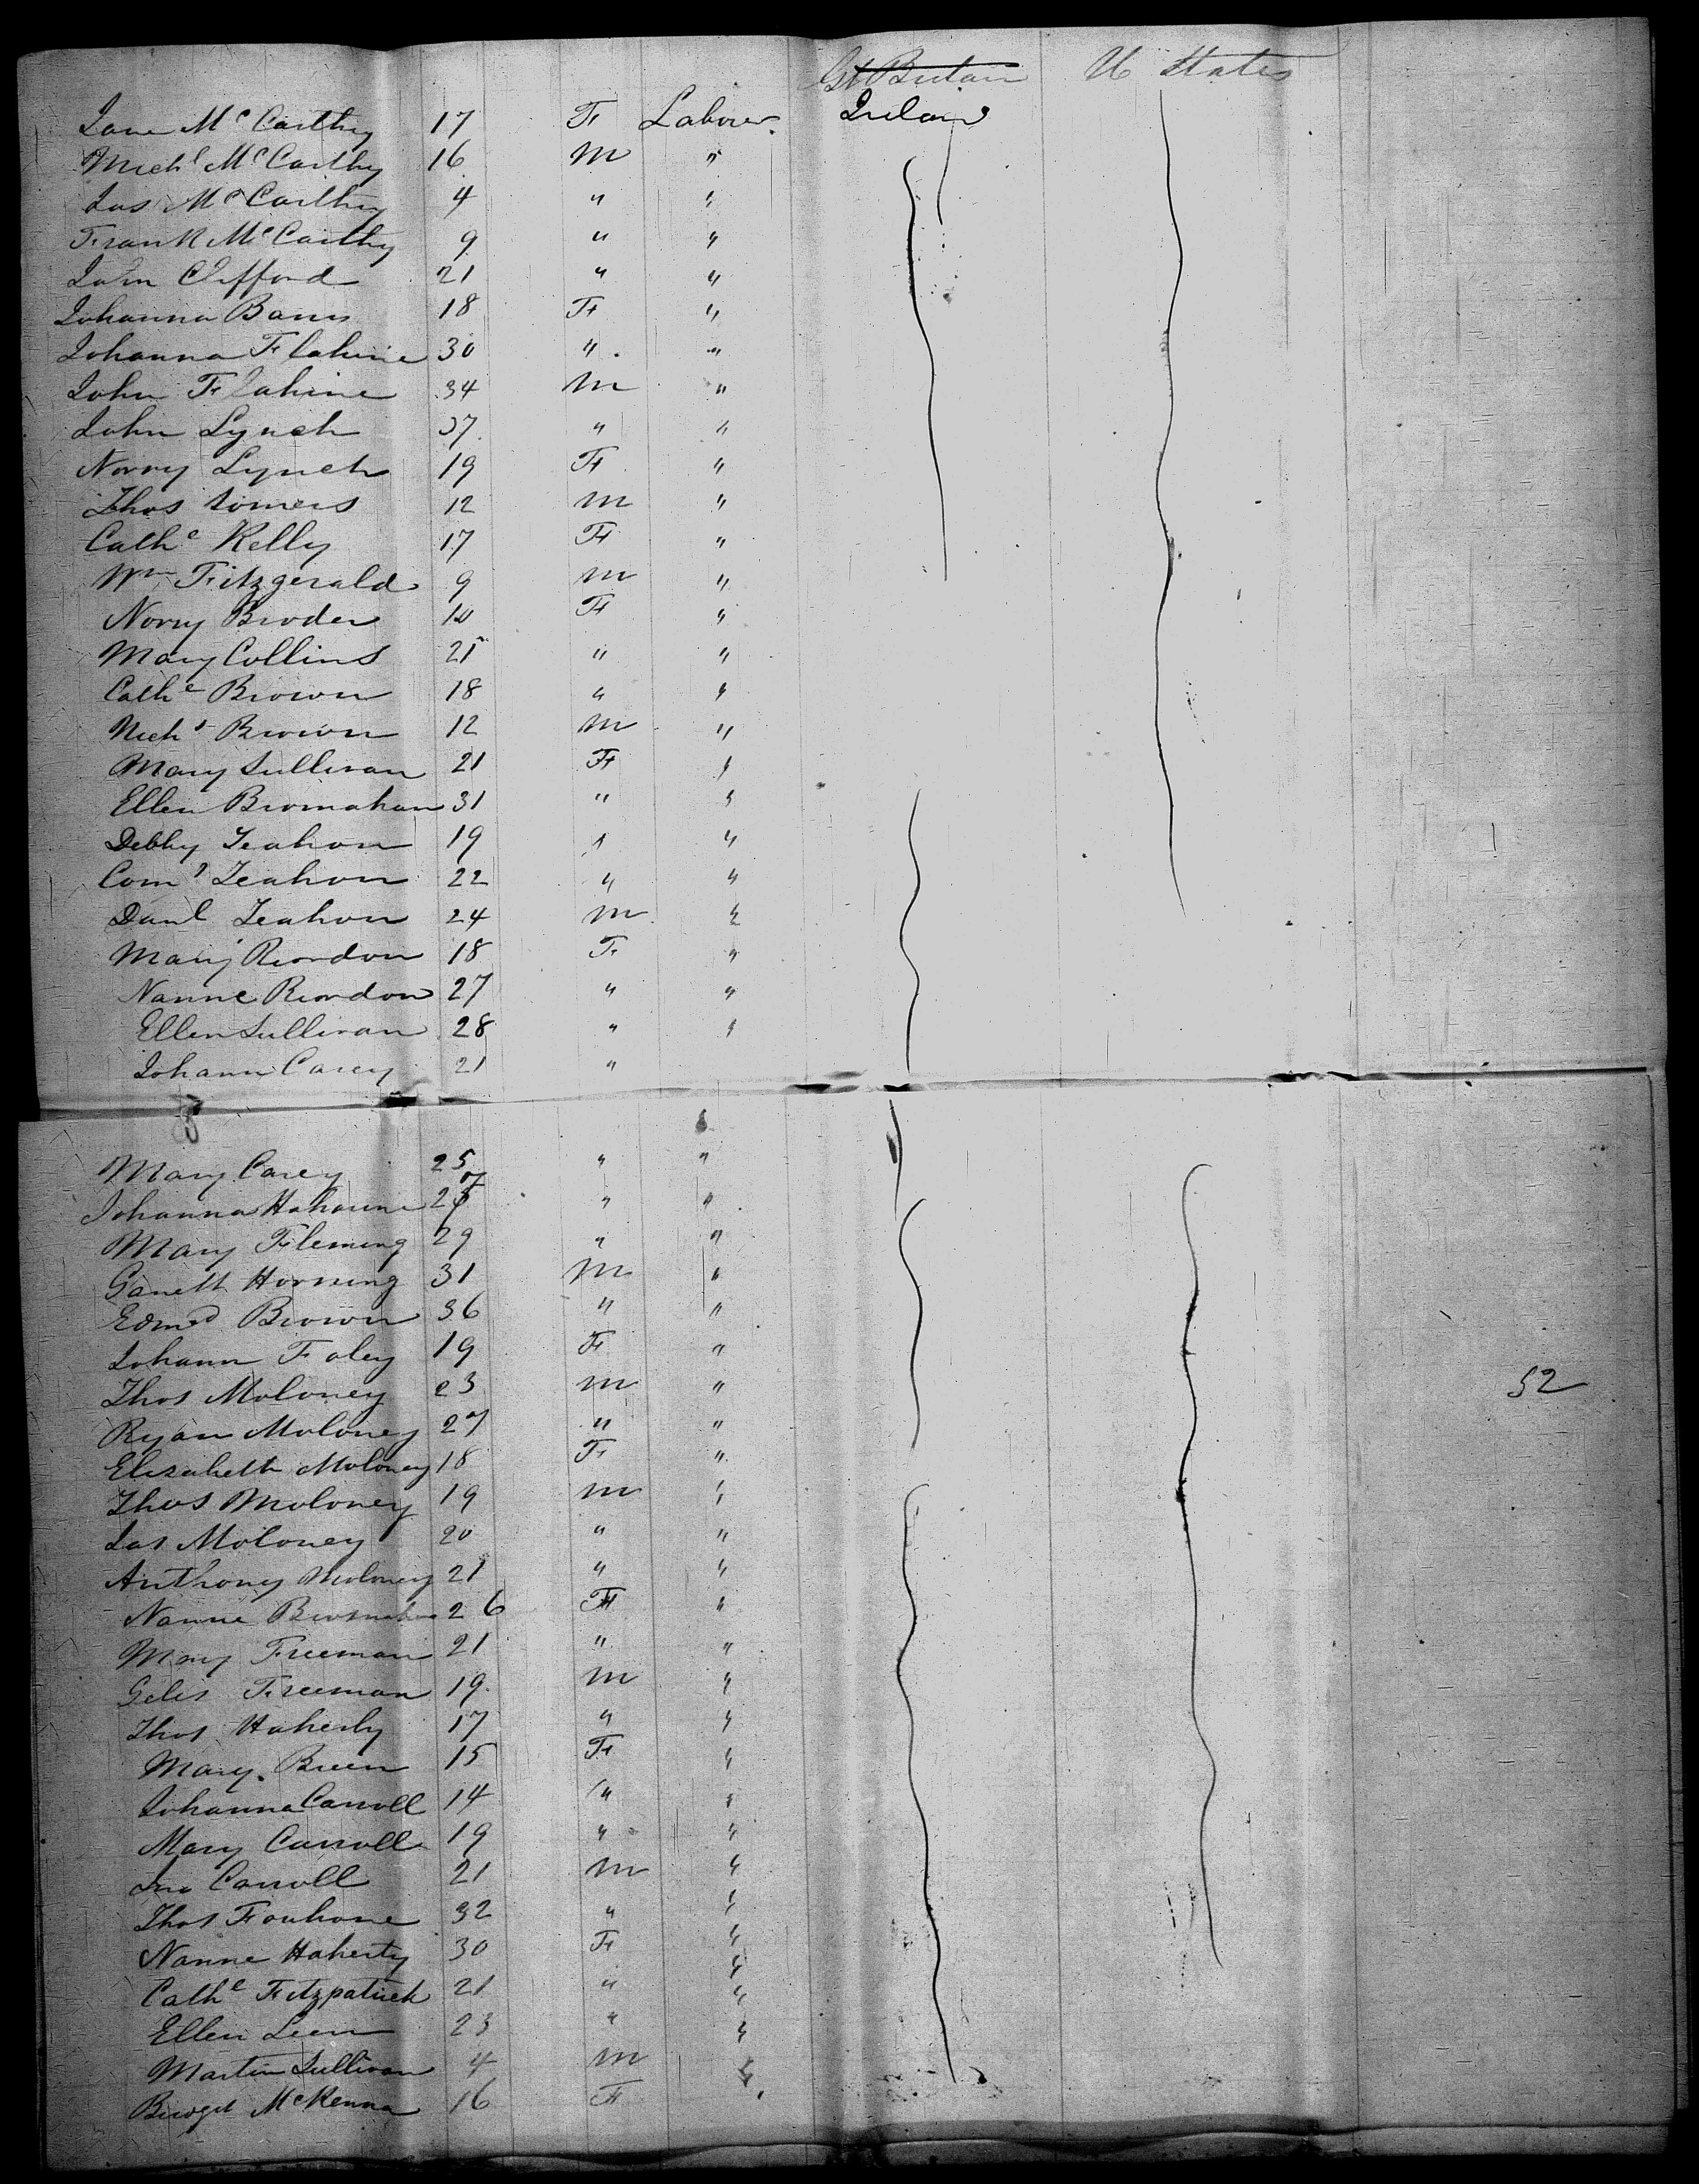 Gt Britain U States
Jane McCarthy 17 F Labourer Ireland
Michl McCarthy 16 m "
Jas McCarthy 4 " "
Frank McCarthy 9 " "
John Clifford 21 " "
Johanna Barry 18 F "
Johanna Flahine 30 " "
John Flahine 34 m "
John Lynch 37 " "
Norry Lynch 19 F "
Thos Somers 12 m "
Cathe Kelly 17 F "
Wm Fitzgerald 9 m "
Norry Broder 10 F "
Mary Collins 21 " "
Cathe Brown 18 " "
Nichs Brown 12 m "
Mary Sullivan 21 F "
Ellen Brosnahan 31 " "
Debby Leahon 19 " "
Corns Leahon 22 " "
Danl Leahon 24 m "
Mary Reordon 18 F "
Nanne Reordon 27 " "
Ellen Sullivan 28 " "
Johann Carey 21 "
Mary Carey 25 " "
Johanna 27 " "
Mary Fleming 29 " "
Garrett 31 m "
Edmd Brown 36 " "
Johann Foley 19 F "
Thos Moloney 23 m "
Ryan Moloney 27 " "
52
Elizabeth Moloney 18 F "
Thos Moloney 19 m "
Jas Moloney 20 " "
Anthony Moloney 21 " "
Nanne Brosnahan 26 F "
Mary Freeman 21 " "
Giles Freeman 19 m "
Thos Haherty 17 " "
Mary Breen 15 F "
Johanna Carroll 14 " "
Mary Carroll 19 " "
Jno Carroll 21 m "
Thos Fouhane 32 " "
Nanne Haherty 30 F "
Cathe Fitzpatrick 21 " "
Ellen Leen 23 " "
Martin Sullivan 4 m "
Bridget McKenna 16 F "